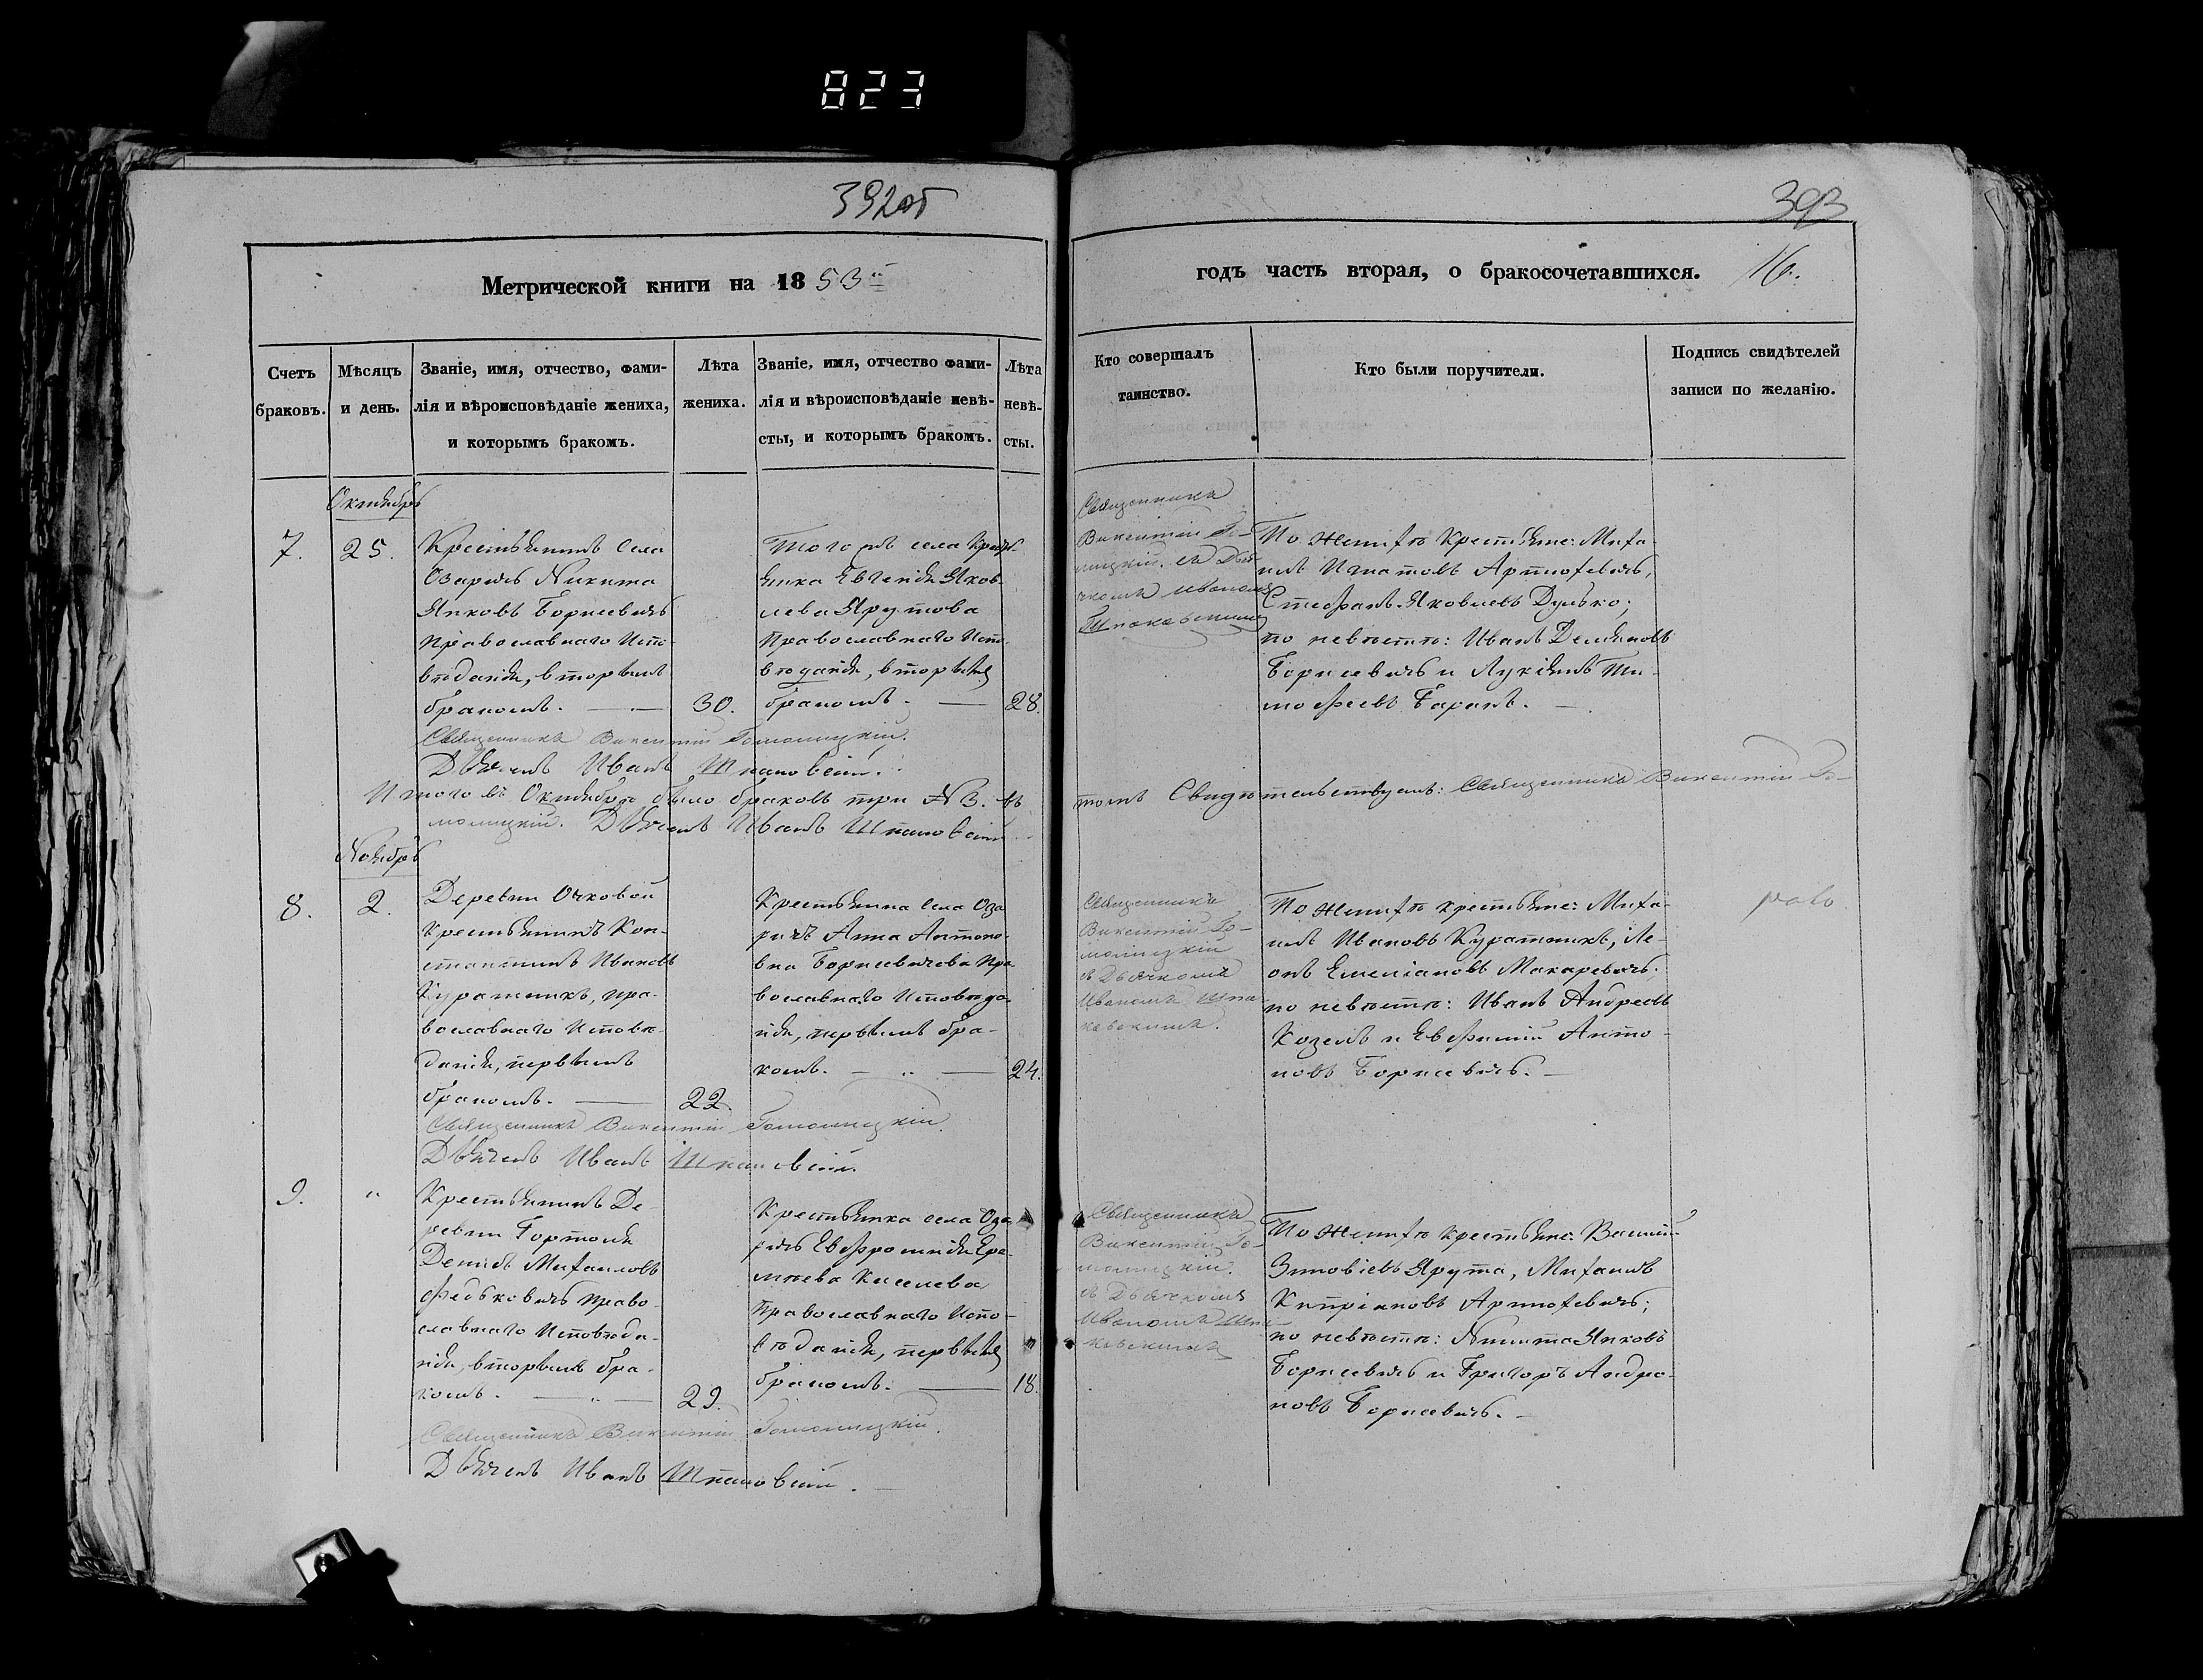 823
392об
393
Метрической книги на 1853й
годъ часть вторая, о бракосочетавшихся. 16.
Счетъ
браковъ.
Мѣсяцъ
и день.
Званіе, имя, отчество, фами-
лія и вѣроисповѣданіе жениха,
и которымъ бракомъ.
Лѣта
жениха.
Званіе, имя, отчество фами-
лія и вѣроисповѣданіе невѣ-
сты, и которымъ бракомъ.
Лѣта
невѣ-
сты.
Кто совершалъ
таинство.
Кто были поручители.
Подпись свидѣтелей
записи по желанію.
Октябрь
7.
25.
Крестьянинъ села
Озаричь Никита
Яковъ Борисевичь
православнаго Испо-
вѣданія, вторымъ
бракомъ.
30.
Того жъ села Кресть-
янка Евгенія Яков-
лева Ярутова
Православнаго Испо-
вѣданія, вторымъ
бракомъ.
28.
Священникъ
Викентій Го-
молицкій. съ Дья-
чкомъ Иваномъ
Шпаковскимъ
По женихѣ крестьяне: Миха-
илъ Игнатовъ Артюхевичь,
Стефанъ Яковлевъ Дулько;
по невѣстѣ: Иванъ Демяновъ
Борисевичь и Лукіянъ Ти-
мофеевъ Баранъ.
Священникъ Викентій Гомолицкій.
Дьячекъ Иванъ Шпаковскій.
Итого въ Октябрѣ было браковъ три №3. въ
томъ Свидѣтельствуемъ: Священникъ Викентій Го-
молицкій. Дьячекъ Иванъ Шпаковскій
Ноябрь
8.
2.
Деревни Очковой
Крестьянинъ Кон-
стантинъ Ивановъ
Куратникъ, пра-
вославнаго Исповѣ-
данія, первымъ
бракомъ.
22.
Крестьянка села Оза-
ричъ Анна Антоно-
вна Борисевичева Пра-
вославнаго Исповѣда-
нія, первымъ бра-
комъ.
24.
Священникъ
Викентій Го-
молицкій
съ Дьячкомъ
Иваномъ Шпа-
ковскимъ.
По женихѣ крестьяне: Миха-
илъ Ивановъ Куратникъ, Ле-
онъ Емеліановъ Макаревичь;
по невѣстѣ: Иванъ Андреевъ
Козелъ и Евфимій Анто-
новъ Борисевичь.
Священникъ Викентій Гомолицкій.
Дьячекъ Иванъ Шпаковскій.
9.
"
Крестьянинъ Де-
ревни Гортоля
Денисъ Михаиловъ
Федьковичь право-
славнаго Исповѣда-
нія, вторымъ бра-
комъ.
29.
Крестьянка села Оза-
ричь Евфросинія Ере-
мѣева Киселева
Православнаго Испо-
вѣданія, первымъ
бракомъ.
18.
Священникъ
Викентій Го-
молицкій.
съ Дьячкомъ
Иваномъ Шпа-
ковскимъ
По женихѣ крестьяне: Василій
Зиновіевъ Ярута, Михаилъ
Кипріановъ Артюхевичь;
по невѣстѣ: Никита Яковъ
Борисевичь и Григоръ Андро-
новъ Борисевичь.
Священникъ Викентій Гомолицкій.
Дьячекъ Иванъ Шпаковскій.